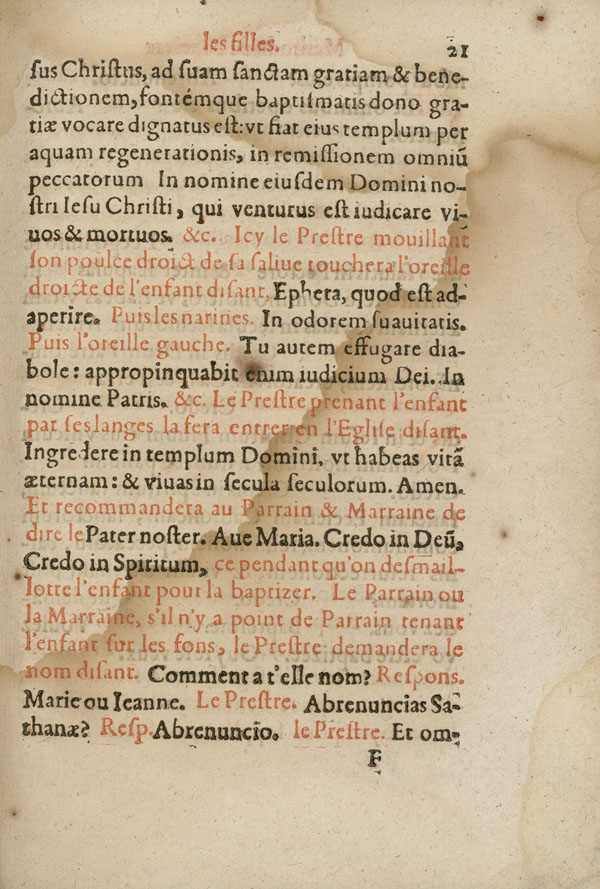 les filles.
21
sus Christus, ad suam sanctam gratiam & bene-
dictionem, fontémque baptismatis dono gra-
tiæ vocare dignatus est: vt fiat eius templum per
aquam regenerationis, in remissionem omniũ
peccatorum In nomine eiusdem Domini no-
stri Iesu Christi, qui venturus est iudicare vi-
uos & mortuos. &c. Icy le Prestre mouillant
son poulce droict de sa saliue touchera l'oreille
droicte de l'enfant disant, Epheta, quod est ad-
aperire. Puis les narines. In odorem suauitatis.
Puis l'oreille gauche. Tu autem effugare dia-
bole: appropinquabit enim iudicium Dei. In
nomine Patris. &c. Le Prestre prenant l'enfant
par ses langes la fera entrer en l'Eglise disant.
Ingredere in templum Domini, vt habeas vitã
æternam: & viuas in secula seculorum. Amen.
Et recommandera au Parrain & Marraine de
dire le Pater noster. Aue Maria. Credo in Deũ,
Credo in Spiritum, ce pendant qu'on desmail-
lotte l'enfant pour la baptizer. Le Parrain ou
la Marraine, s'il n'y a point de Parrain tenant
l'enfant sur les fons, le Prestre demandera le
nom disant. Comment a t'elle nom? Respons.
Marie ou Ieanne. Le Prestre. Abrenuncias Sa-
thanæ? Resp. Abrenuncio. le Prestre. Et om-
F